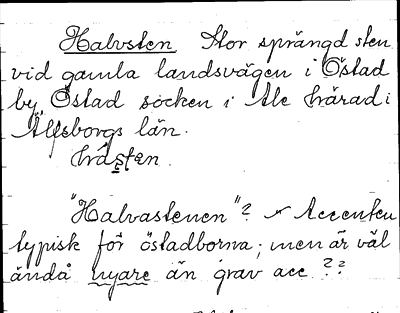 Halvsten Stor sprängd sten
vid gamla landsvägen i Östad
by, Östad socken i Ale härad i
Älfsborgs län.
"Halvastenen"? Accenten
typisk för östadborna; men är väl
ändå nyare än grav acc ??